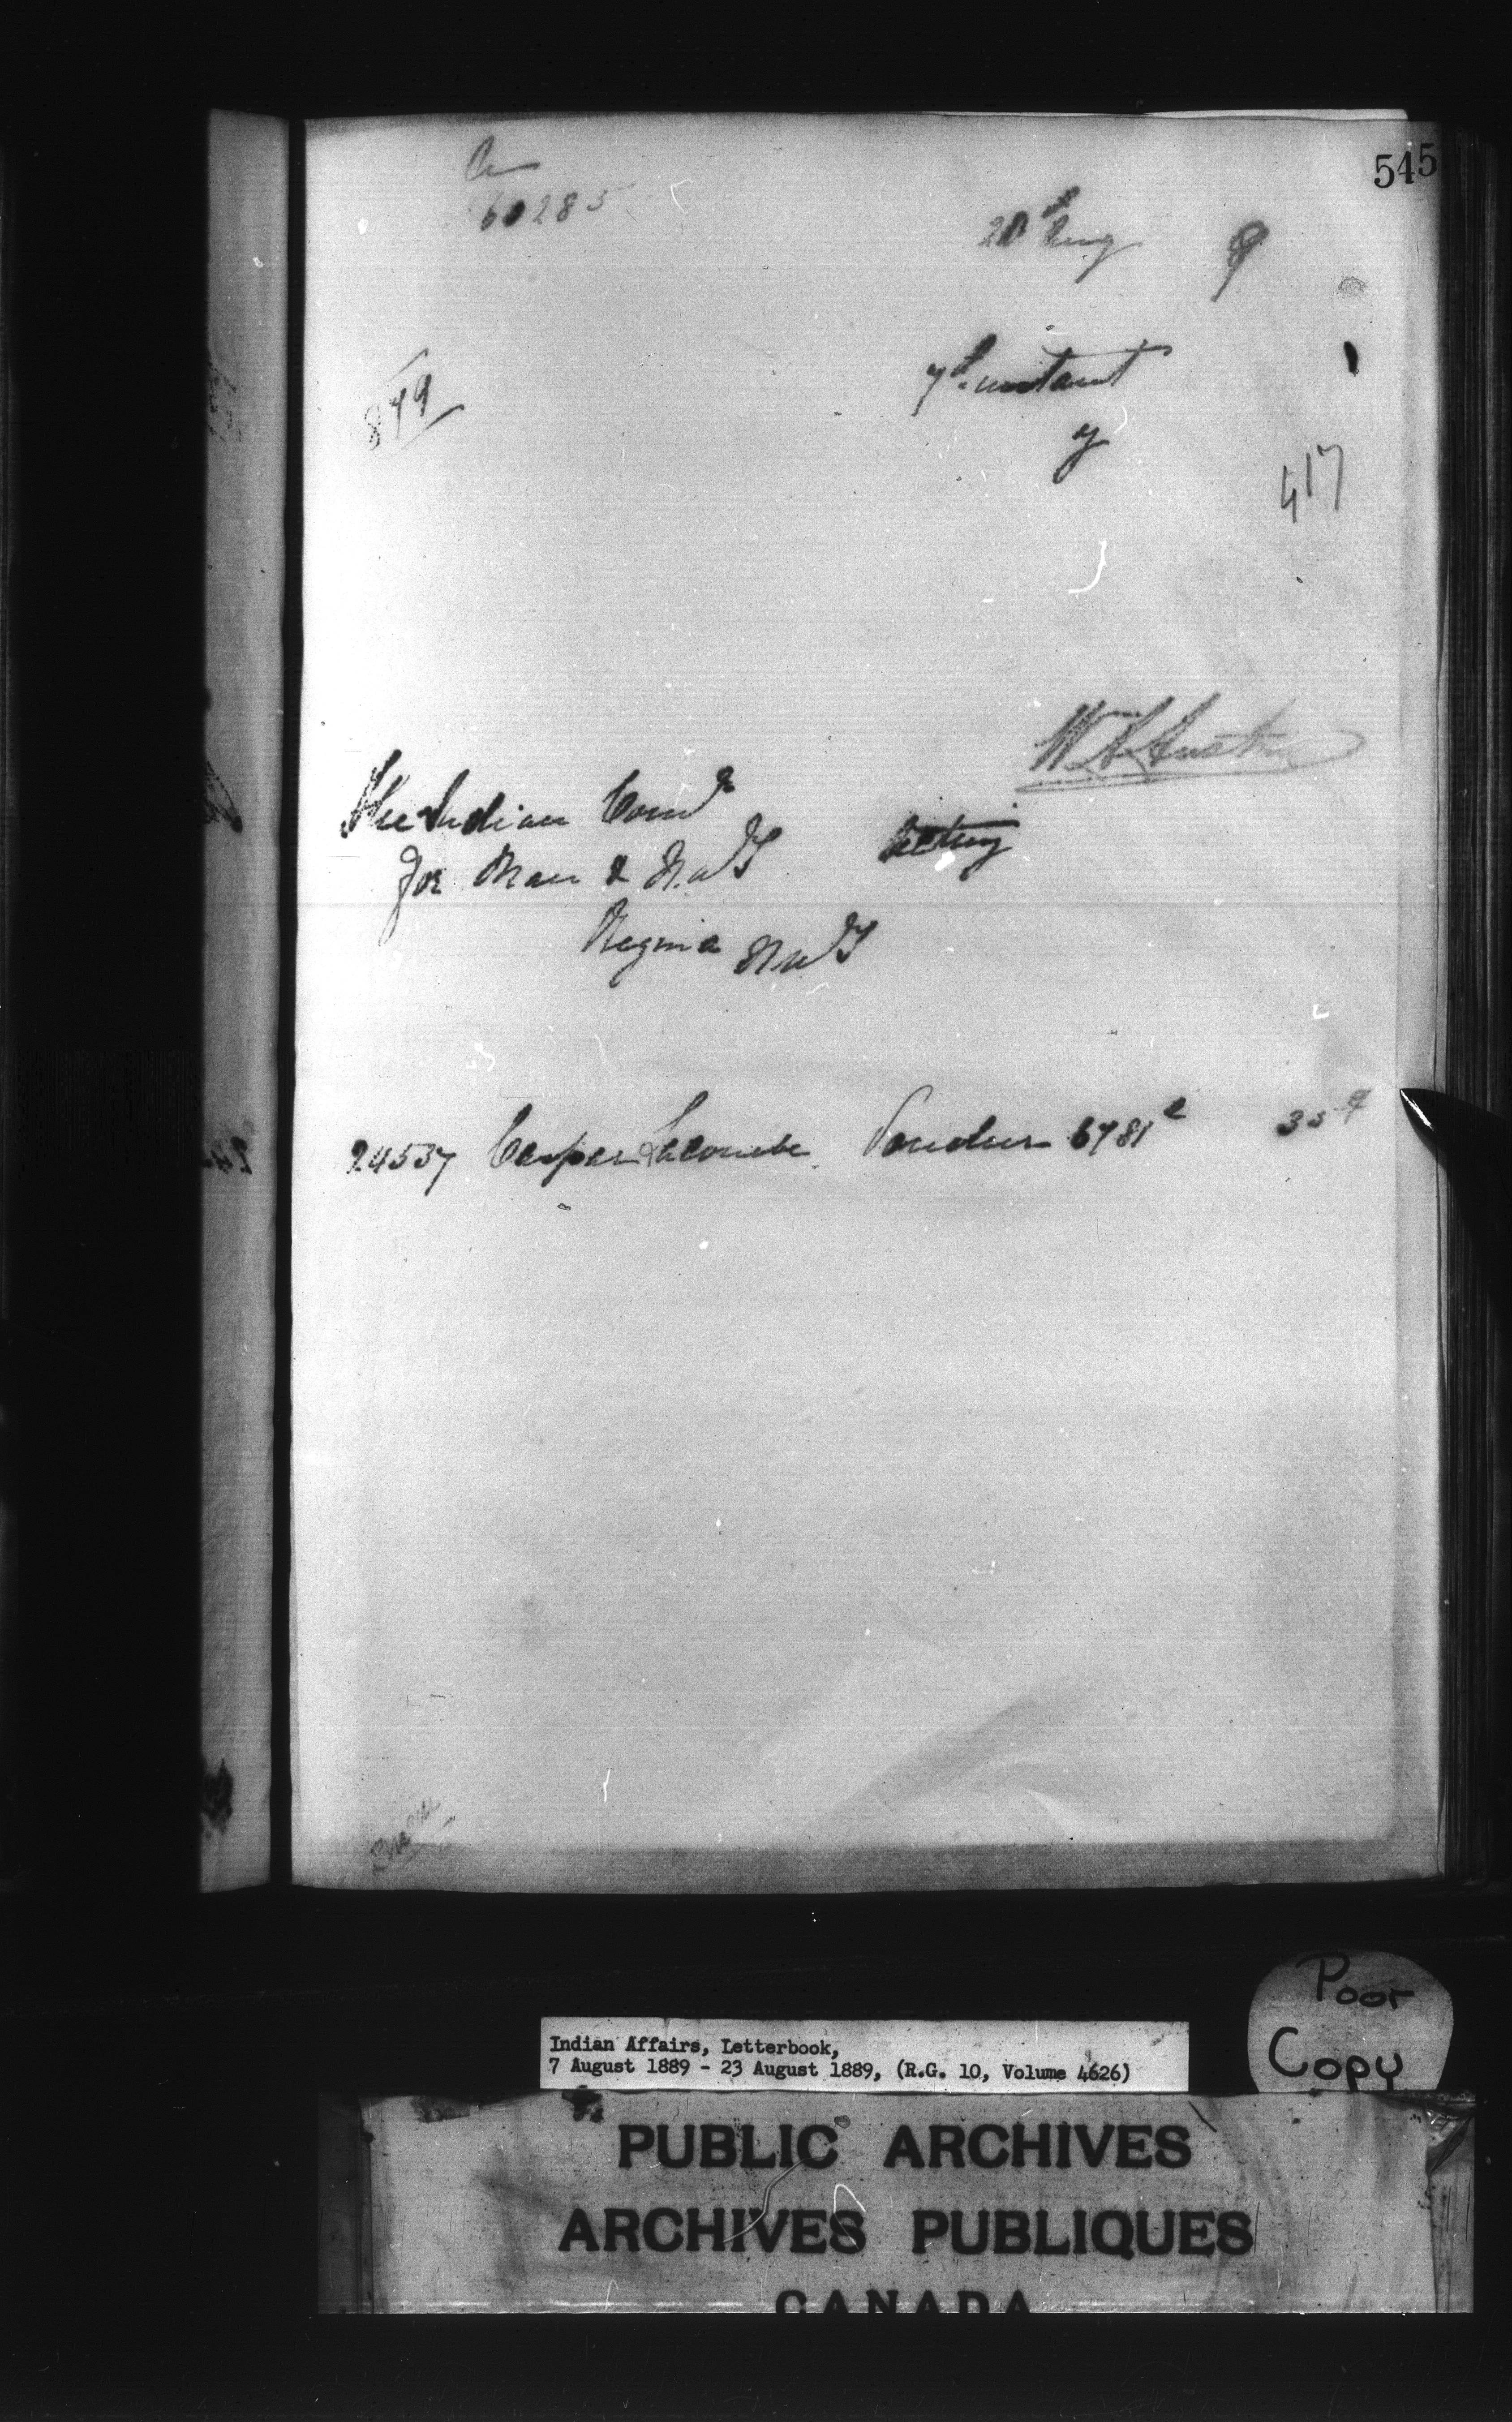 545
60285
20th Aug 9
7th instant
849
y
417
W. A. Austin
The Indian Comr
for Man & N.W.T
Acting
Regina N.W.T
24537 Casper Lacombe Voucher 6781
35
Poor
Copy
Indian Affairs, Letterbook,
7 August 1889 - 23 August 1889, (R.G. 10, Volume 4626)
PUBLIC ARCHIVES
ARCHIVES PUBLIQUES
CANADA